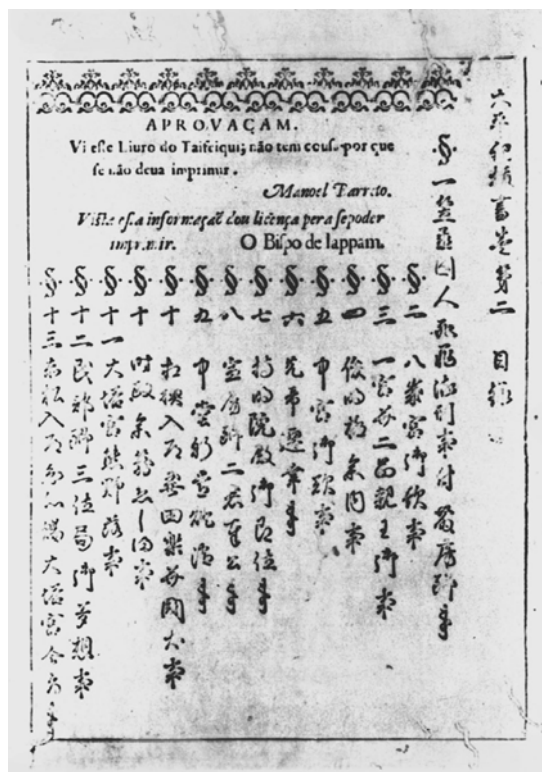 太平記抜書巻第二 目録
§ 一 笠置囚人死罪流刑事付藤房卿事
APROVAÇAM.
Vi este Liuro do Taifeiqui; não tem cousa por que
se não deua imprimir.
Manoel Barreto.
Vista esta informaçaõ dou licença pera se poder
imprimir. O Bispo de Iappam.
§ 二 八歳宮御歌事
§ 三 一宮并二品親王御事
§ 四 俊明極参内事
§ 五 中宮御歎事
§ 六 先帝遷幸事
§ 七 持明院殿御即位事
§ 八 宣房卿二君奉公事
§ 九 中堂新常灯消事
§ 十 相模入道弄田楽并闘犬事
§ 十 時政参籠
§ 十一 大塔宮熊野落事
§ 十二 民部卿三位局御夢想事
§ 十三 赤松入道円心賜大塔宮令旨事